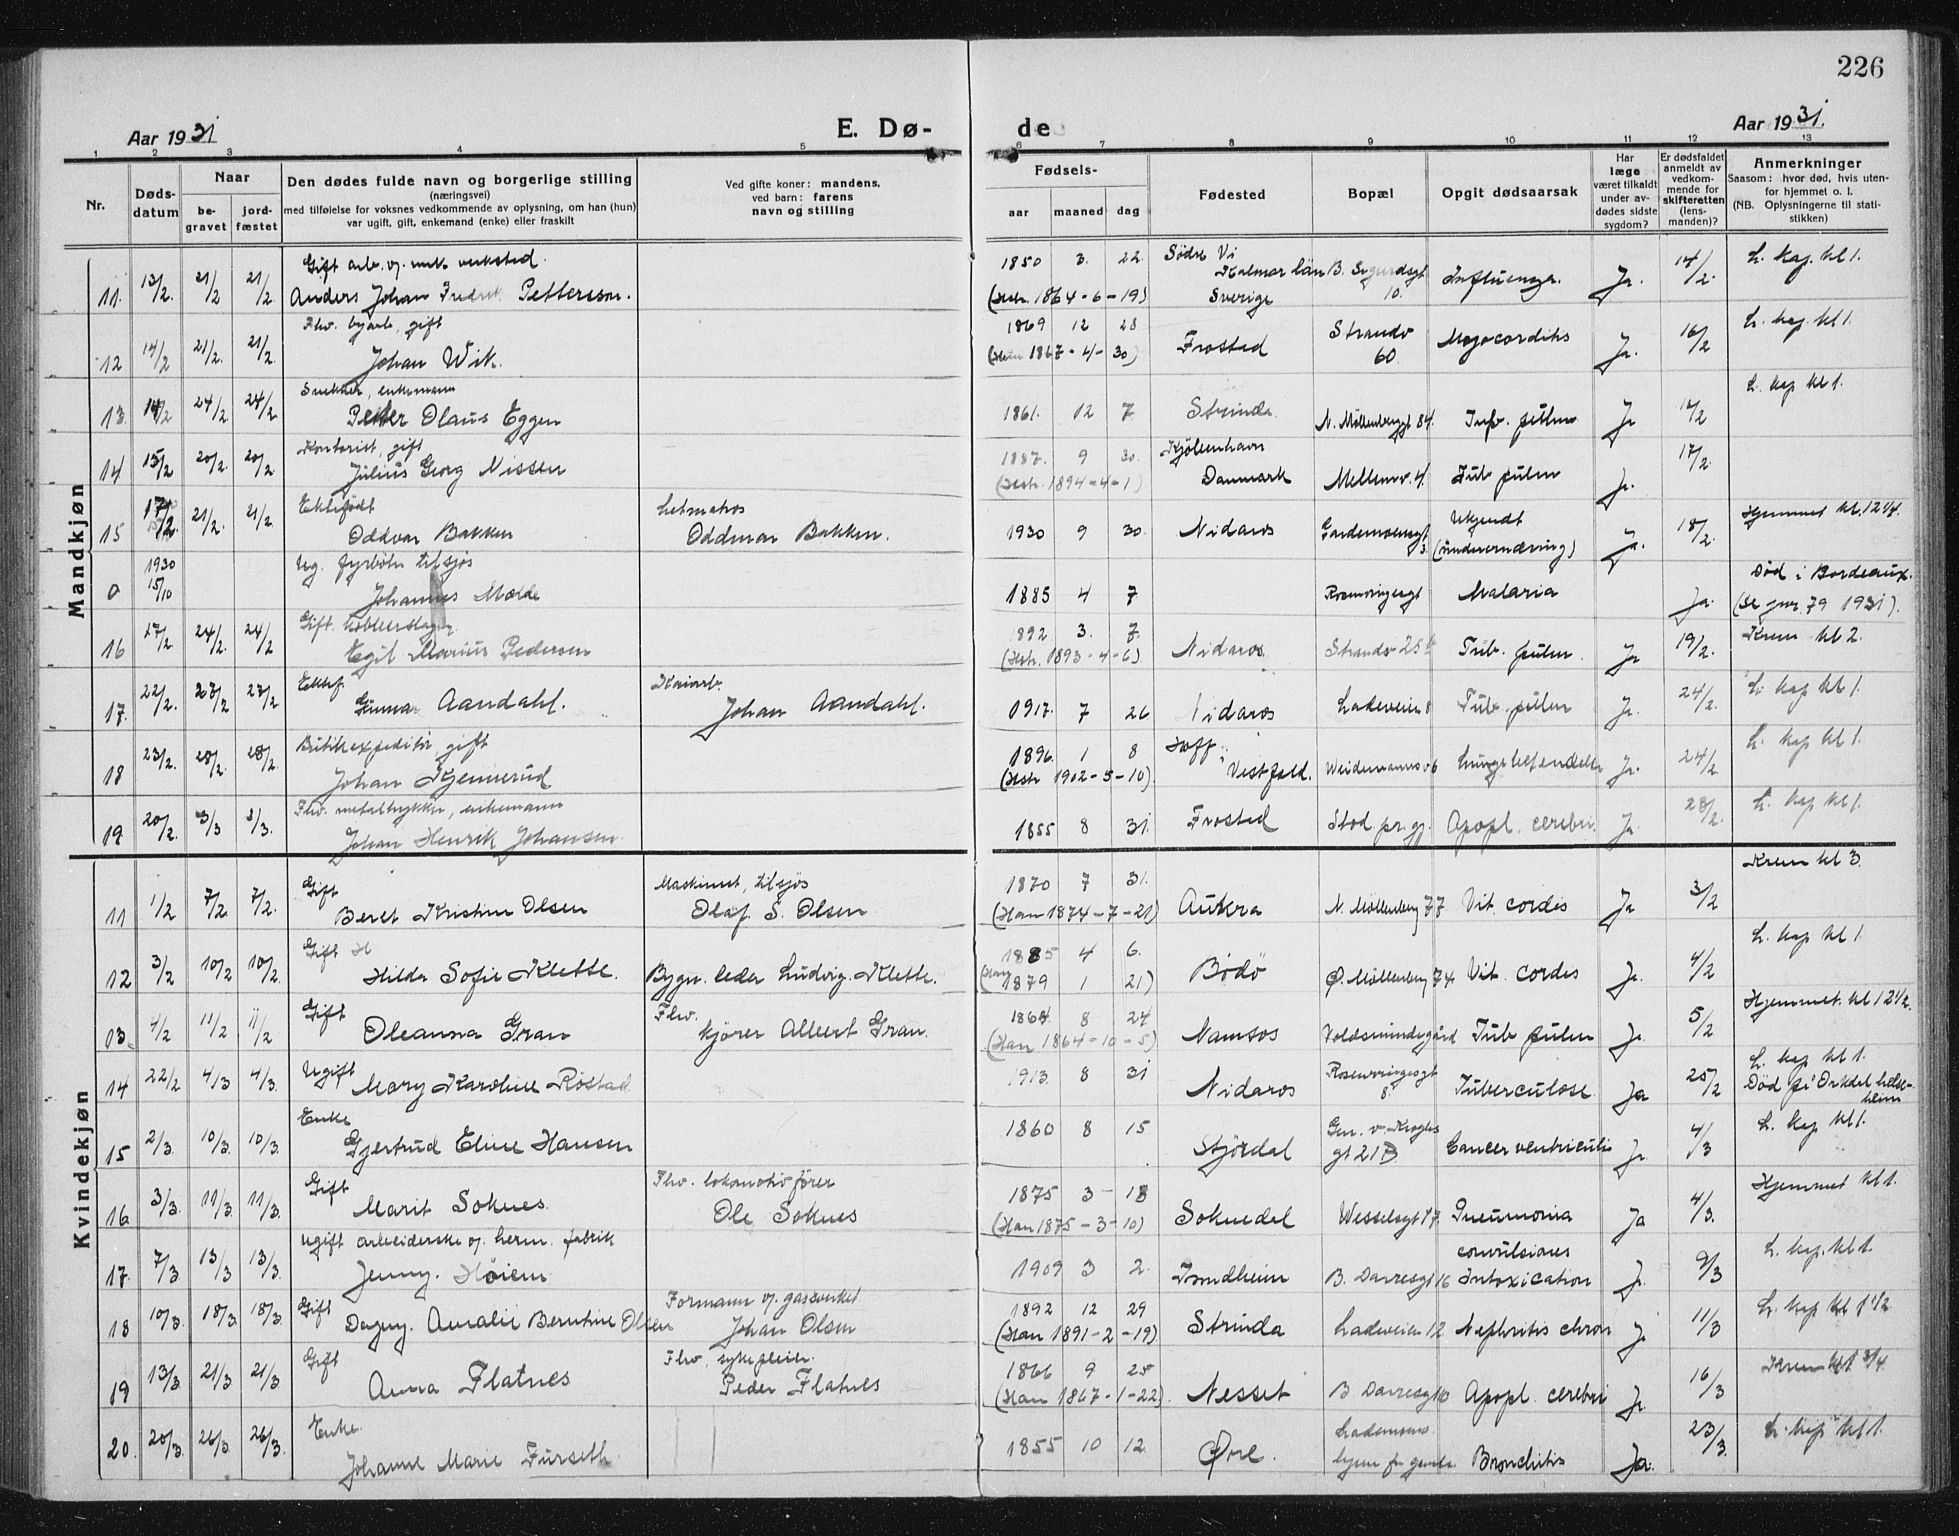 226
Aar 1931
E. Dø-
de
Aar 1931.
1 2 3 4 5 6 7 8 9 10 11 12 13
Nr.
Døds-
datum
Naar
be-
gravet
jord-
fæstet
Den dødes fulde navn og borgerlige stilling
(næringsvei)
med tilføielse for voksnes vedkommende av oplysning, om han (hun)
var ugift, gift, enkemand (enke) eller fraskilt
Ved gifte koner: mandens,
ved barn: farens
navn og stilling
Fødsels-
aar maaned dag
Fødested
Bopæl
Opgit dødsaarsak
Har
læge
været tilkaldt
under av-
dødes sidste
sygdom?
Er dødsfaldet
anmeldt av
vedkom-
mende for
skifteretten
(lens-
manden)?
Anmerkninger
Saasom: hvor død, hvis uten-
for hjemmet o. l.
(NB. Oplysningerne til stati-
stikken)
Mandkjøn
Gift arb. v. mek verksted.
11. 13/2. 21/2 21/2 Anders Johan Fredrik Pettersson.
1850 3. 22. Södra Vi Kalmar län Sverige B. Sigurdsgt 10. Influenza. Ja. 14/2. L. kap. kl 1.
(Hstr. 1864-6-19)
Fhv. byarb, gift
12 14/2 21/2. 21/2 Johan Wik.
1869 12 28 Frosted Strandv 60. Ja. 16/2 L. kap. kl 1.
1867-4-30)
Snekker, enkemann
13. 14/2 24/2 24/2 Petter Olaus Eggen
1861. 12 7 Strinda N. Møllenberggt 84. Ja 17/2 L. kap kl 1.
Kontorist, gift
14 15/2 20/2. 20/2 Julius Georg Nissen
1887. 9 30. Kjøbenhavn Danmark Mellemv. 4. Tub pulm Ja. 17/2
(Hstr. 1894-4-1)
Ektefødt
15 17/2 21/2. 21/2 Oddvar Bakken Oddmar Bakken.
1930 9 30. Nidaros Gardemoensgt 3. Ukjendt (underernæring) Ja. 18/2. Hjemmet kl. 12 1/4.
Ug. fyrbøter tilsjøs
0 1930 15/10 Johannes Molde
1885 4 7 Rosenvingesgt Malaria Ja. Død i Bordeaux.
(Se jnr. 79 1931).
Gift. kobberslager
16 17/2 24/2. 24/2 Egil Marius Pedersen
1892 3. 7. Nidaros Strandv 25 Tub. pulm. Ja 19/2. Krem kl 2.
(Hstr. 1893-4-6)
Ektef. Kaiarb.
17. 22/2. 27/2 27/2 Gunnar Aandahl. Johan Aandahl.
1917. 7 26 Nidaros Ladeveien 8 Tub. pulm Ja. 24/2. L. kap kl 1.
Butikexpeditør, gift
18 23/2. 28/2. 28/2. Johan Kjennerud
1896. 1 8 Hoff i Vestfold. Weidemannsv 6 Lungebetendelse Ja. 24/2. L. kap kl 1.
(Hstr 1902-5-10)
Fhv. metaltrykker, enkemann
19. 20/2. 3/3 3/3. Johan Henrik Johansen.
1855 8 31. Frosted Stod pr.gj. Apopl. cerebri. Ja 28/2. L. kap kl 1.
Kvindekjøn
Gift Maskinist, tilsjøs
11 1/2 7/2 7/2. Beret Kristine Olsen Olaf S. Olsen
1870 7 31. Aukra N. Møllenberg 77 Vit. cordis Ja 3/2 Krem kl 3.
(Han 1874-7-21)
Gift
12 3/2 10/2 10/2. Hilda Sofie Klette. Bygn. leder Ludvig Klette.
1885 4 6. Bodö Ø. Møllenberg 74 Vit. cordis Ja. 4/2 L. kap kl 1.
(Han 1879 1 21)
Gift Fhv.
13. 4/2 11/2 11/2 Oleanna Gran kjører Albert Gran.
1864 8 24 Namsos Voldsmindegård Tub pulm Ja 5/2 Hjemmet. kl 12 1/2.
(Han 1864-10-5)
Ugift
14 22/2 4/3 4/3. Mary Karoline Røstad
1913. 8 31 Nidaros Rosenvingesgt 8. Tuberculose Ja 25/2 L. kap kl 1.
Død på Orkdal helse-
heim
Enke
15 2/3 10/3 10/3. Gjertrud Eline Hansen
1860 8 15 Stjørdal Gen. v. Kroghs gt 21 B Cancer ventriculi Ja 4/3 L. kap kl 1.
Gift Fhv. lokomotivfører
16 3/3. 11/3. 11/3. Marit Soknes. Ole Soknes
1875 3 18 Soknedal Wesselsgt 17. Pneumonia Ja 4/3. Hjemmet kl 1.
(Han 1875-3-10)
Ugift arbeiderske v. herm. fabrik
17. 7/3 13/3 13/3. Jenny. Høiem
1909 3 2. Trondheim B. Darresgt 16 convulsiones Intoxication Ja. 9/3 L. kap. kl 1.
Gift Formann v. gasverket
18 10/3. 18/3 18/3. Dagny. Amalie Berntine Olsen Johan Olsen
1892 12 29 Strinda Ladeveien 12 Nephritis chron Ja 11/3 L. kap kl 1 1/2
(Han 1891-2-19)
Gift Fhv. sykepleier.
19 13/3 21/3 21/3. Anna Flatnes Peder Flatnes
1866 9 25 Nesset B Darresgt 10 Apopl. cerebri Ja. 16/3 Krem kl 1 3/4.
(Han 1867-1-22)
Enke
20 20/3. 26/3. 26/3. Johanne Marie Furseth.
1855 10 12. hjem for gamle Bronchitis Ja. 23/3. L. kap kl 1.